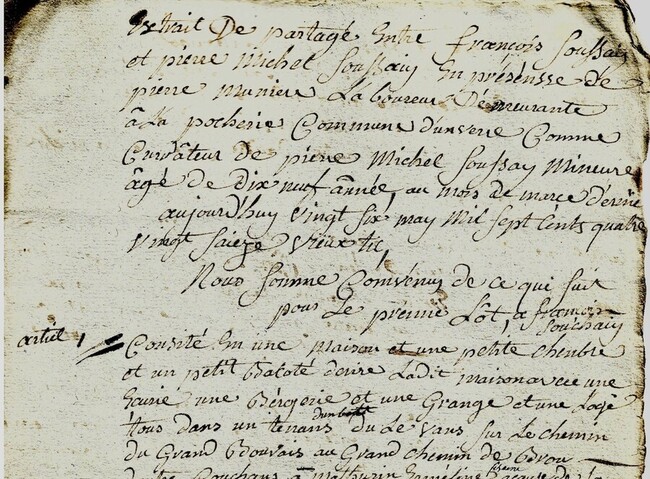 Extrait De partage Entre françois Soussay
et pierre Michel Soussay En présénsse de
pierre muniere Laboureur Démeurante
âla pocherie Commune d'unvere Comme
Curâteur de pierre Michel Soussay Mineure
âgé de Dix neuf année, au mois de marce dernié
aujourd'huy vingt six may Mil sept Cents quatre
vingt saieze vieux til,
Nous somme Convenus de ce qui suit
pour Le premié Lot, a françois
Souchay
artiel 1
Consité En une maison et une petite chenbre
et un petit Bacoté dérire Ladit maison avec une
Eçurié une Bérgerie et une Grange et une Loge
tous dans un tenans du Levans sur Le chemin
du Grand Bouvais au Grand chemin de Brou
a Mathurin